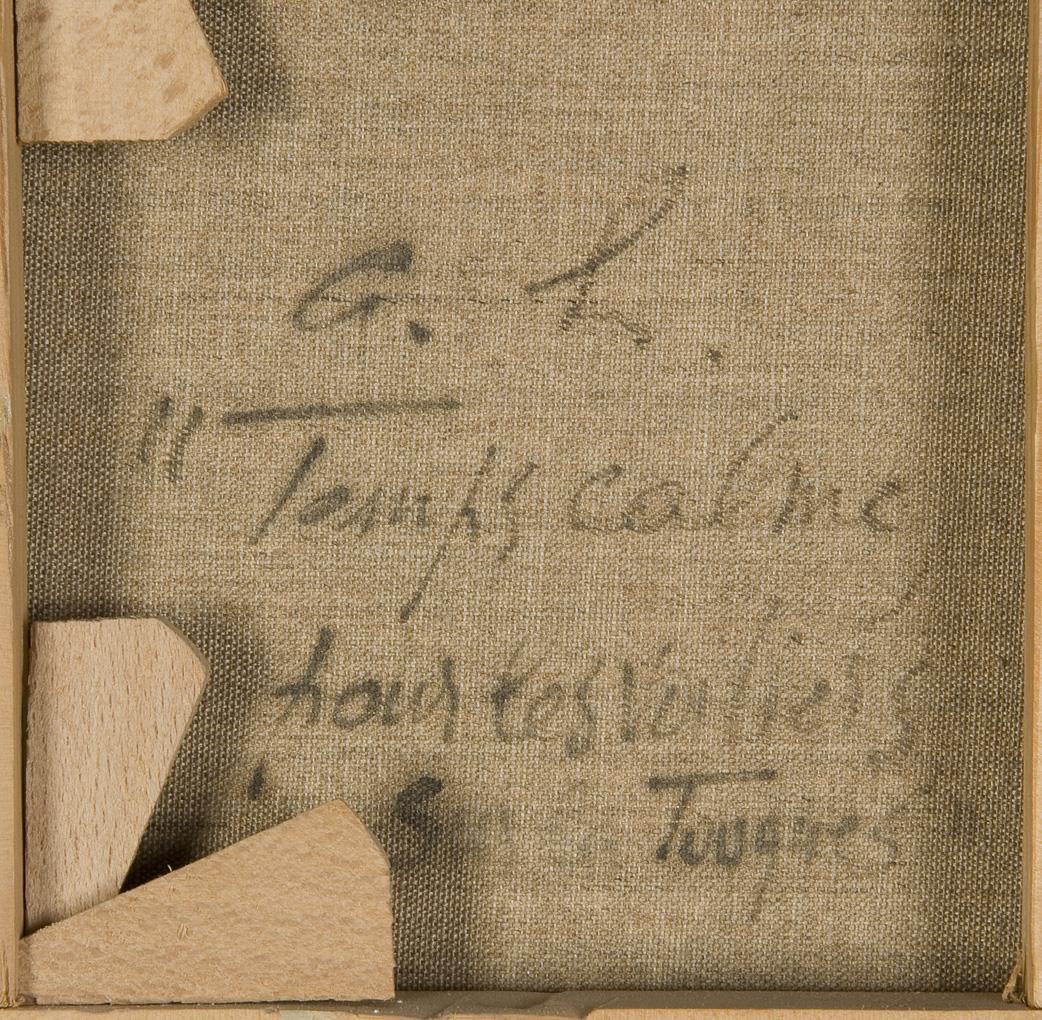 G. L.
"Temps calme
tous les voiliers
Tougues